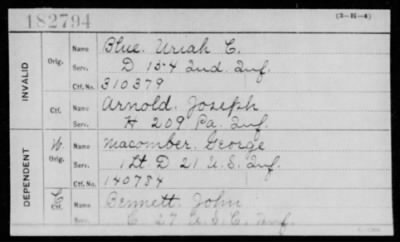 182794
(3-H-4)
INVALID
Orig.
Name Blue. Uriah C.
Serv. D 154 Ind. Inf.
Ctf. No. 310379
Ctf.
Name Arnold. Joseph
Serv. H 209 Pa. Inf.
DEPENDENT
W. Orig.
Name Macomber, George
Serv. 1 Lt D 21 U.S. Inf.
Ctf. No. 140784
Ctf.
Name Bennett. John
Serv. C 27 U.S.C. Inf.